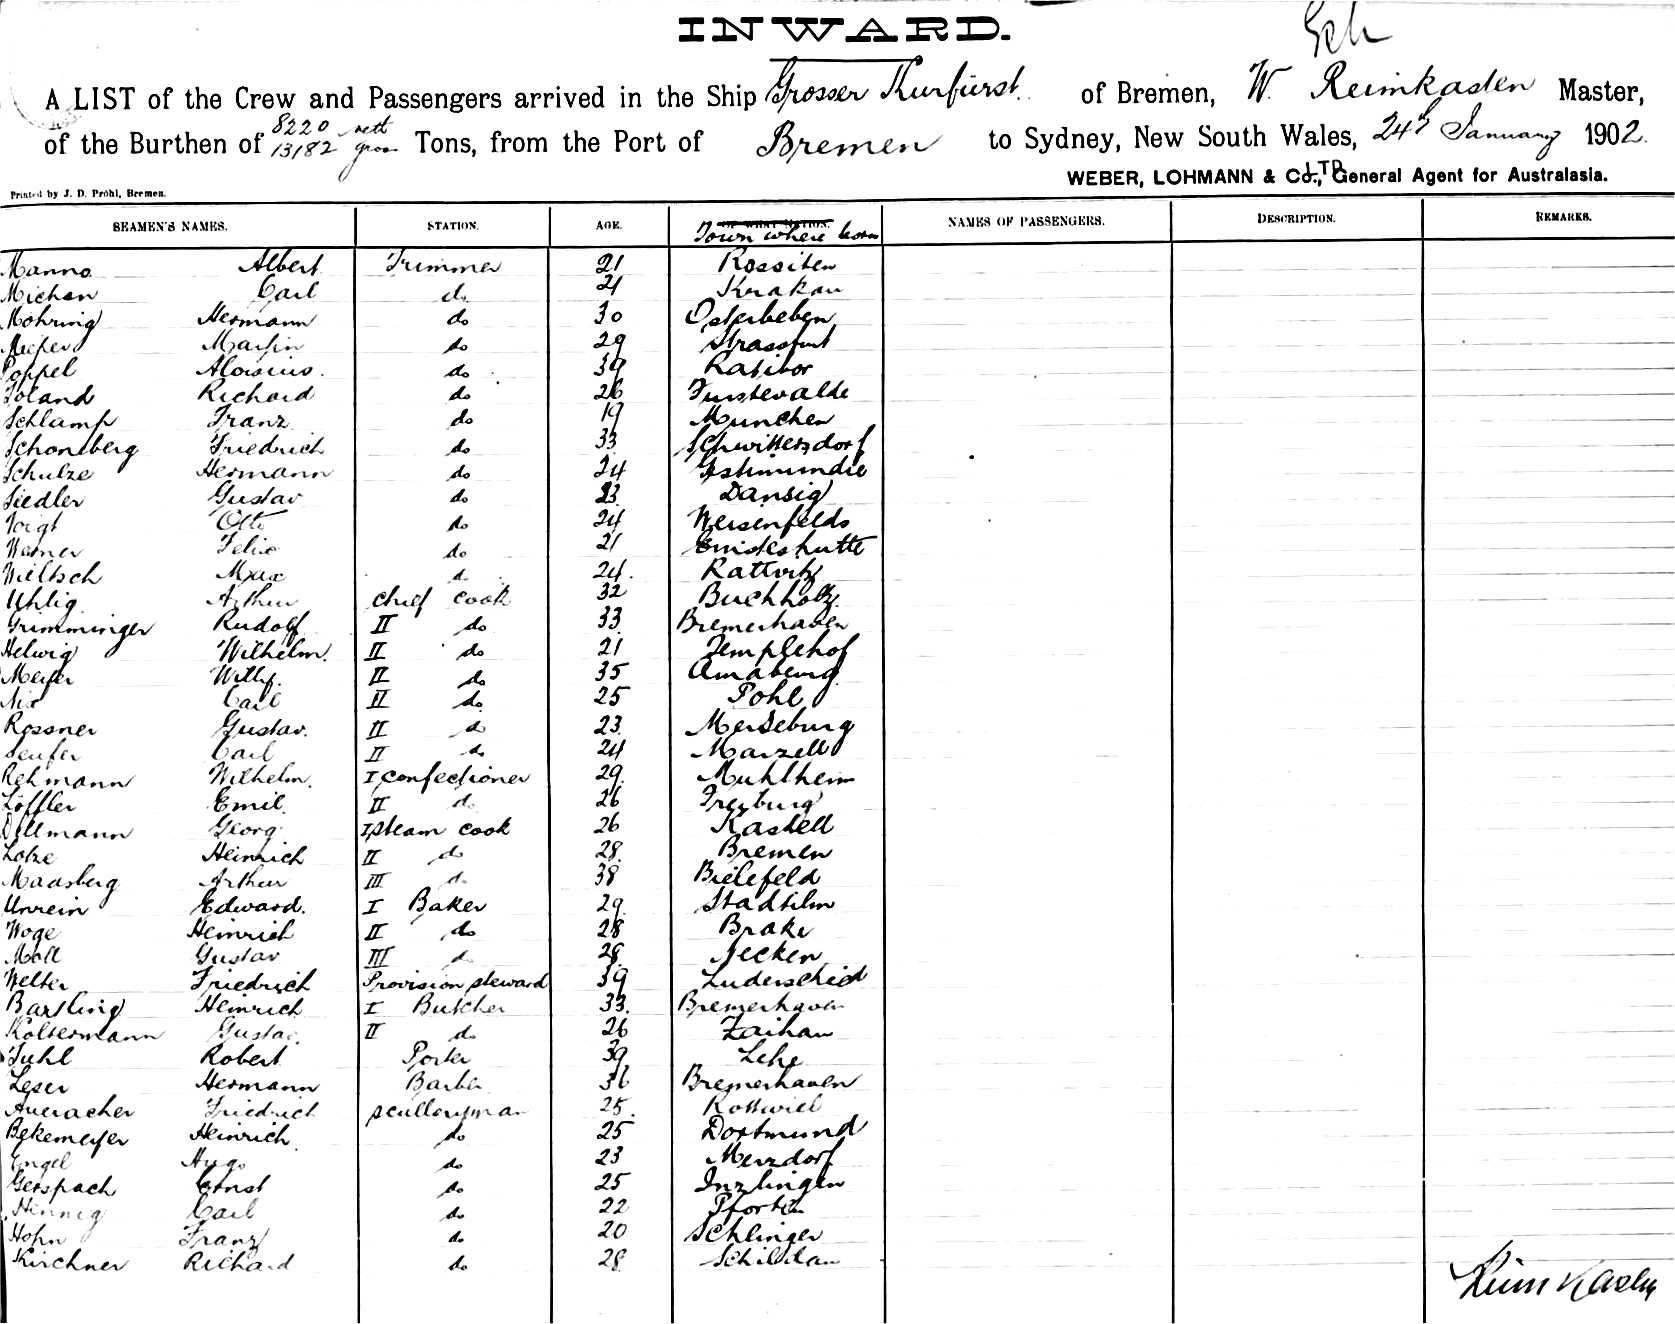 INWARD.
A LIST of the Crew and Passengers arrived in the Ship Grosser Kurfürst. of Bremen, W. Reimkasten Master,
of the Burthen of 8220 nett 13182 gross Tons, from the Port of Bremen to Sydney, New South Wales, 24th January 1902.
WEBER, LOHMANN & Co., LTD General Agent for Australasia.
Printed by J. D. Pröhl, Bremen.
SEAMEN'S NAMES. STATION. AGE. OF WHAT NATION. Town where born NAMES OF PASSENGERS. DESCRIPTION. REMARKS.
Manno Albert Trimmer 21 Rossiten
Michen Carl do 21 Krakau
Mohring Hermann do 30 Osterbeben
Martin do 29 Strassfurt
Poppel Aloisius. do 39 Ratibor
Poland Richard do 26 Furstevalde
Schlamp Franz do 19 Munchen
Schonsberg Friedrich do 33 Schwittersdorf
Schulze Hermann do 24
Siedler Gustav do 23 Dansig
Voigt Otto do 24 Weisenfelds
Werner Felix do 21
Wieltsch Max do 24. Kattvitz
Uhlig Arthur chief cook 32 Buchholz
Grimminger Rudolf II do 33 Bremerhaven
Helwig Wilhelm. II do 21 Templehof
Meyer Willy. II do 35
Nix Carl II do 25 Pohl
Rossner Gustav. II do 23 Merseburg
Seufer Carl II do 24 Marzell
Rehmann Wilhelm. I confectioner 29 Muhlheim
Löffler Emil II do 26 Freyburg
Dillmann Georg I steam cook 26 Kastell
Lotze Heinrich II do 28 Bremen
Maasberg Arthur III do 38 Bielefeld
Unrein Edward. I Baker 29 Stadtilm
Woge Heinrich II do 28 Brake
Moll Gustav III do 28 Jecken
Welter Friedrich Provision steward 39 Luderscheid
Bartling Heinrich I Butcher 33 Bremerhaven
Koltermann Gustav. II do 26 Zaihau
Tuhl Robert Porter 39 Lehe
Leser Hermann Barber 36 Bremerhaven
Aueracher Friedrich sculleryman 25. Rottwiel
Bekemeyer Heinrich do 25 Dortmund
Engel Hugo do 23 Merzdorf
Gerspach Ernst do 25 Inzlingen
Hennig Carl do 22 Pforten
Hohn Franz do 20 Schlinger
Kirchner Richard do 28 Schildau
Reimkasten